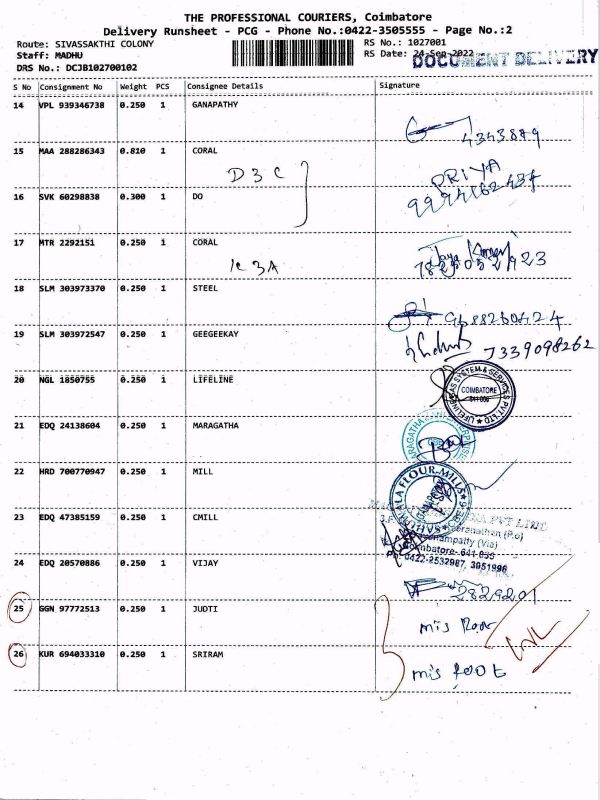 THE PROFESSIONAL COURIERS, Coimbatore
Delivery Runsheet - PCG - Phone No.:0422-3505555 - Page No.:2
Route: SIVASSAKTHI COLONY RS No.: 1027001
Staff: MADHU RS Date: 24-Sep-2022
DOCUMENT DELIVERY
DRS No.: DCJB102700102
S No Consignment No Weight PCS Consignee Details Signature
14 VPL 939346738 0.250 1 GANAPATHY
4343889
15 MAA 288286343 0.810 1 CORAL
D3C PRIYA
16 SVK 60298838 0.300 1 DO
17 MTR 2292151 0.250 1 CORAL
K 3A
18 SLM 303973370 0.250 1 STEEL
9688260424
19 SLM 303972547 0.250 1 GEEGEEKAY
7339098262
20 NGL 1850755 0.250 1 LIFELINE
COIMBATORE
21 EDQ 24138604 0.250 1 MARAGATHA
22 HRD 700770947 0.250 1 MILL
FLOUR MILLS
23 EDQ 47385159 0.250 1 CMILL
PVT
(P.o)
(Via)
Coimbatore- 641 035
Ph: 0422-2532987, 3951996
24 EDQ 20570886 0.250 1 VIJAY
2829201
25 GGN 97772513 0.250 1 JUDTI
26 KUR 694033310 0.250 1 SRIRAM
mis root